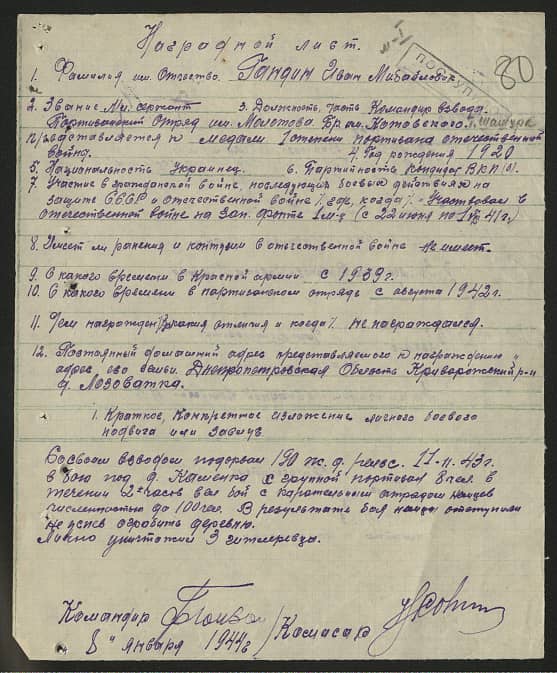 80
Наградной лист.
1. Фамилия им. Отчество. Гандин Иван Михайлович.
2. Звание Мл. сержант 3. Должность, часть Командир взвода.
Партизанский Отряд им. Молотова Бр. им. Котовского.
Представляется к медали I степени партизана отечественной
войны. 4. Год рождения 1920
5. Национальность Украинец. 6. Партийность Кандидат ВКП(б).
7. Участие в гражданской войне, последующих боевых действиях на
защите СССР и отечественной войне /где, когда/. Участвовал в
отечественной войне на Зап. фронте 1 м-ц (с 22 июня по 41 г.)
8. Имеет ли ранения и контузии в отечественной войне не имеет.
9. С какого времени в Красной армии с 1939 г.
10. С какого времени в партизанском отряде с августа 1942 г.
11. Чем награжден /какия отличия и когда/. не награждался.
12. Постоянный домашний адрес представляемого к награждению и
адрес его семьи. Днепропетровская Область Криворожский р-н
д. Лозоватка.
1. Краткое, конкретное изложение личного боевого
подвига или заслуг.
Со своим взводом подорвал 190 ж.д. рельс. 17.11.43 г.
в бою под д. Каменка с группой партизан 8 чел. в
течении 2х часов вел бой с карательным отрядом немцев
численностью до 100 чел. В результате боя немцы отступили
не успев ограбить деревню.
Лично уничтожил 3 гитлеровца.
Командир / Комисар
8" января 1944 г